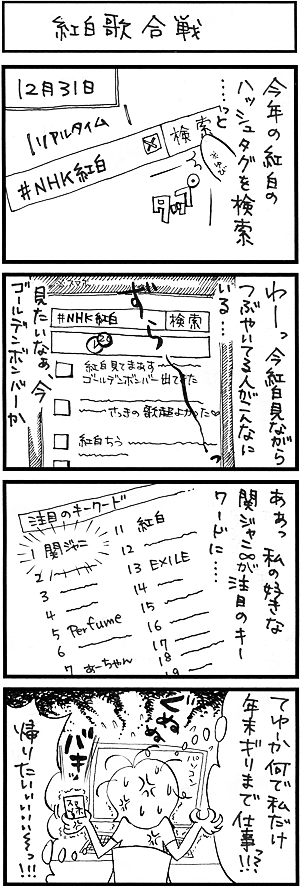 紅白歌合戦
今年の紅白の
ハッシュタグを検索
……っと
12月31日
リアルタイム
#NHK紅白
検索
わーっ 今紅白見ながら
つぶやいてる人がこんなに
いる…
ずらーっ
#NHK紅白
検索
紅白見てまぁす
ゴールデンボンバー出てきた
さっきの歌超よかった♡
紅白ちう
見たいなぁ、今
ゴールデンボンバーか
ああっ 私の好きな
関ジャニ∞が注目のキー
ワードに……
注目のキーワード
1 関ジャニ
2
3
4
5 Perfume
6
7 あーちゃん
11 紅白
12
13 EXILE
14
15
16
17
18
19
てゆーか何で私だけ
年末ギリまで仕事っ!!
ぐぬぬ
パソコン
バキッ
帰りたいいいいい〜っ!!!